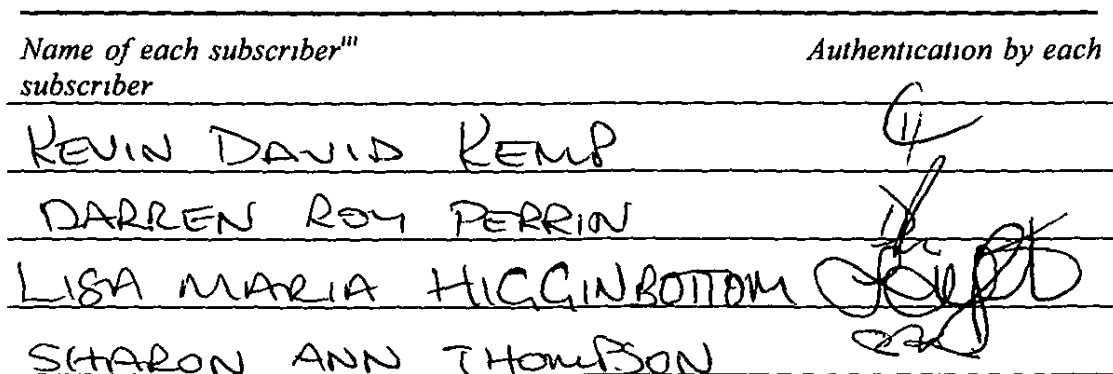 Name of each subscriber''' Authentication by each
subscriber
KEVIN DAVID KEMP
DARREN ROY PERRIN
LISA MARIA HIGGINBOTTOM
SHARON ANN THOMPSON